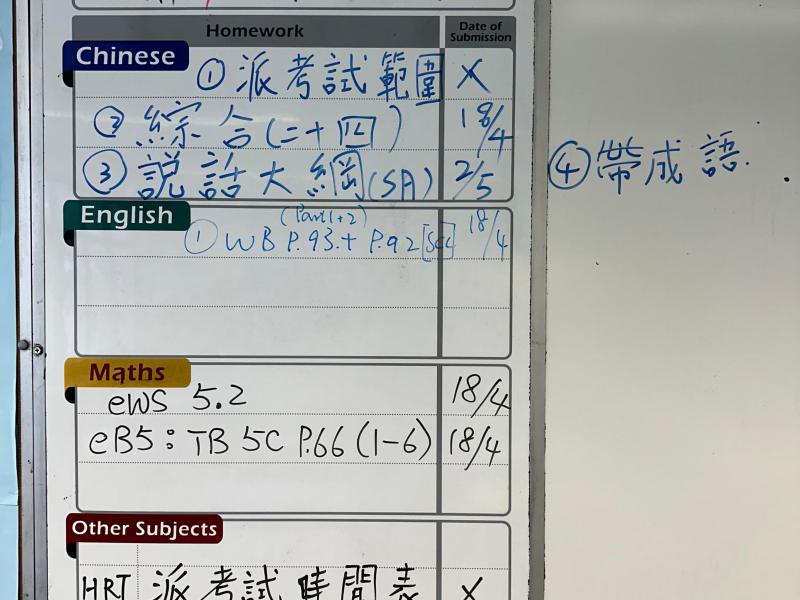 Homework Date of Submission
Chinese
① 派考試範圍 X
② 綜合(二十四) 18/4
③ 説話大綱(SA) 2/5
④帶成語.
English
(Part 1+2)
① WB P.93.+ P.92 18/4
Maths
eWS 5.2 18/4
eB5: TB 5C P.66 (1-6) 18/4
Other Subjects
HRT 派考試時間表 X